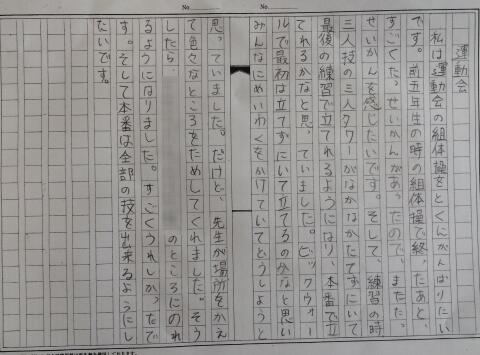 No.
No.
運動会
私は運動会の組体操をとくにがんばりたい
です。前五年生の時の組体操で終ったあと、
すごくた。せいかんがあったので、またた。
せいかんを感じたいです。そして、練習の時、
三人技の三人タワーがなかなかたてずにいて
最後の練習で立てれるようになり、本番で立
てれるかなと思っていました。ビックウォー
ルで最初は立てずにいて立てるのかなと思い
みんなにめいわくをかけていてどうしようと
思っていました。だけど、先生が場所をかえ
て色々なところをためしてくれました。そう
したら、のところにのれ
るようになりました。すごくうれしかったで
す。そして本番は全部の技を出来るようにし
たいです。